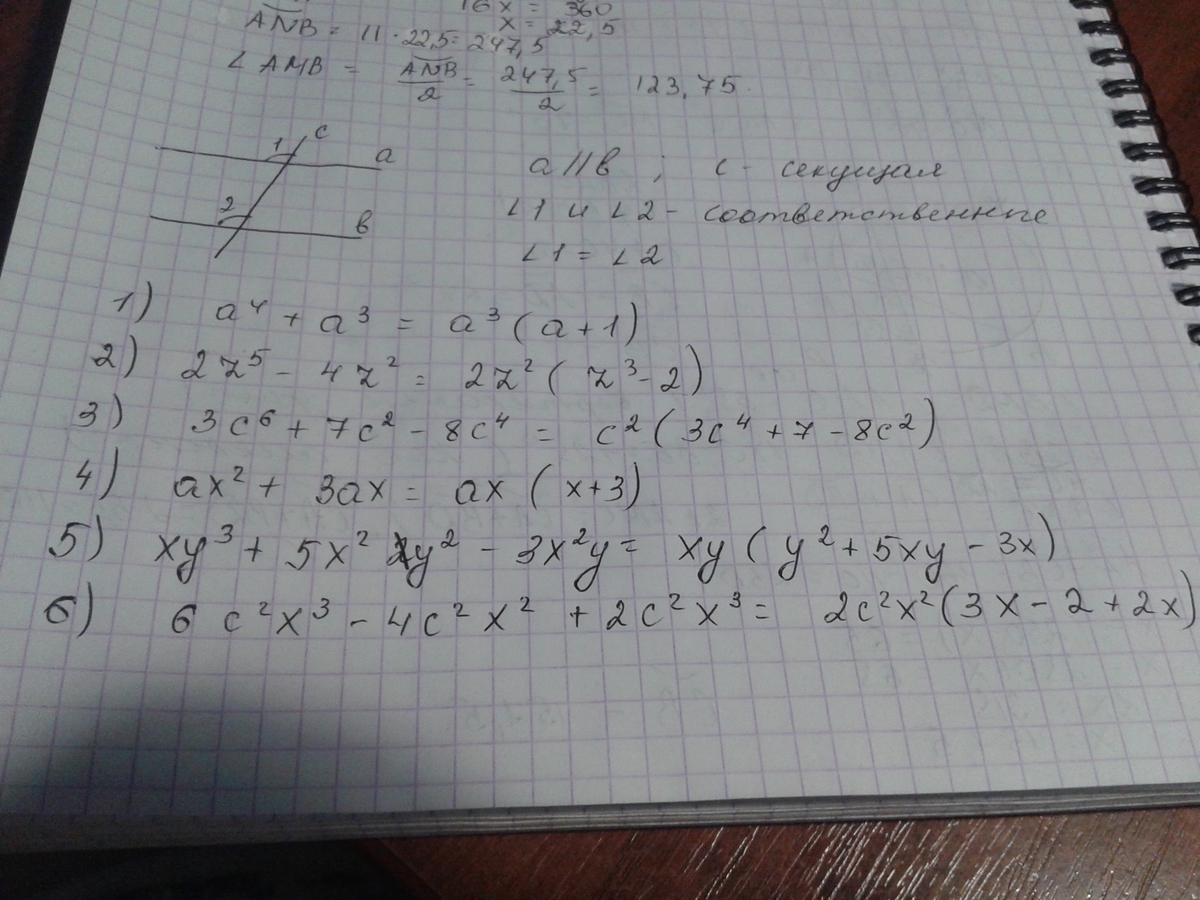 16x = 360
x = 22,5
ANB = 11 · 22,5 = 247,5
∠ AMB = ANB/2 = 247,5/2 = 123,75
1 c a
2 b
a || b ; c - секущая
∠1 и ∠2 - соответственные
∠1 = ∠2
1) a⁴ + a³ = a³ (a + 1)
2) 2z⁵ - 4z² = 2z² ( z³ - 2)
3) 3c⁶ + 7c² - 8c⁴ = c² ( 3c⁴ + 7 - 8c²)
4) ax² + 3ax = ax ( x+3)
5) xy³ + 5x² y² - 3x²y = xy ( y² + 5xy - 3x)
6) 6 c²x³ - 4c² x² + 2c² x³ = 2c²x² (3x - 2 + 2x)